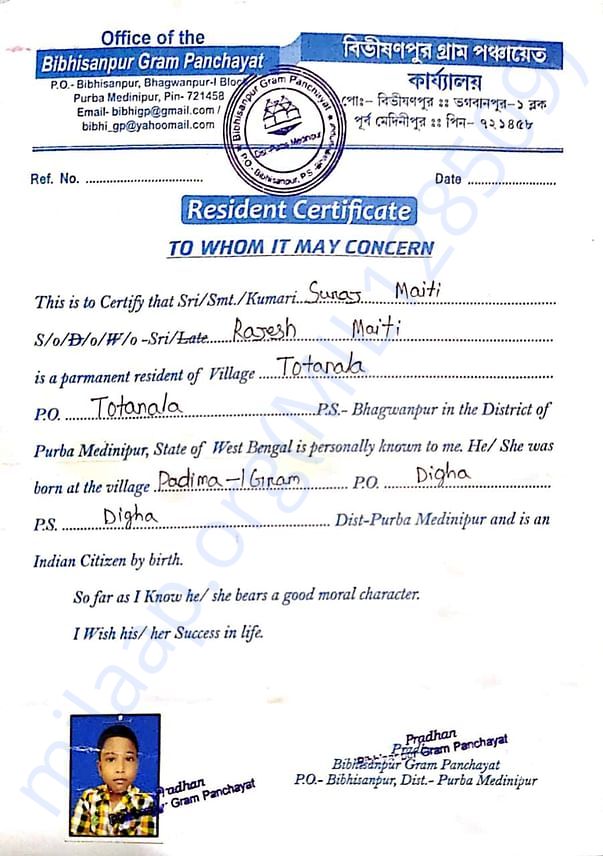 Office of the
Bibhisanpur Gram Panchayat
P.O.- Bibhisanpur, Bhagwanpur-I Block
Purba Medinipur, Pin- 721458
Email- bibhigp@gmail.com /
bibhi_gp@yahoomail.com
বিভীষণপুর গ্রাম পঞ্চায়েত
কার্য্যালয়
পোঃ- বিভীষণপুর ঃঃ ভগবানপুর-১ ব্লক
পূর্ব মেদিনীপুর ঃঃ পিন- ৭২১৪৫৮
Bibhisanpur Gram Panchayat
Dist-Purba Medinipur
P.O.- Bibhisanpur, P.S.
Ref. No. ....................................
Date ............................
Resident Certificate
TO WHOM IT MAY CONCERN
This is to Certify that Sri/Smt./Kumari...Suraj Maiti
S/o/D/o/W/o -Sri/Late Rajesh Maiti
is a parmanent resident of Village Totanala
P.O. Totanala P.S.- Bhagwanpur in the District of
Purba Medinipur, State of West Bengal is personally known to me. He/ She was
born at the village Padima-I Gram P.O. Digha
P.S. Digha Dist-Purba Medinipur and is an
Indian Citizen by birth.
So far as I Know he/ she bears a good moral character.
I Wish his/ her Success in life.
Pradhan
Gram Panchayat
Pradhan
Gram Panchayat
Pradhan
Bibhisanpur Gram Panchayat
P.O.- Bibhisanpur, Dist.- Purba Medinipur
milaap.org(MIL128509)